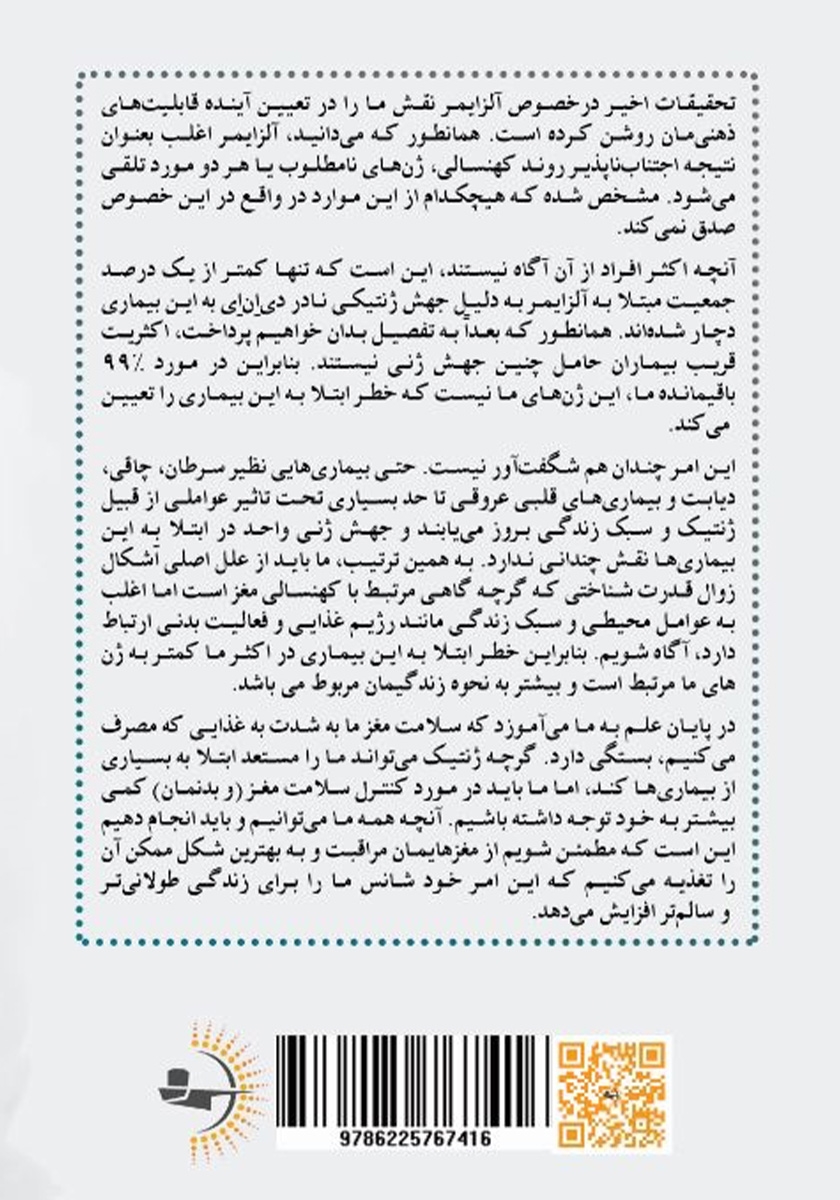 تحقیقات اخیر درخصوص آلزایمر نقش ما را در تعیین آینده قابلیت‌های
ذهنی‌مان روشن کرده است. همانطور که می‌دانید، آلزایمر اغلب بعنوان
نتیجه اجتناب‌ناپذیر روند کهنسالی، ژن‌های نامطلوب یا هر دو مورد تلقی
می‌شود. مشخص شده که هیچکدام از این موارد در واقع در این خصوص
صدق نمی‌کند.
آنچه اکثر افراد از آن آگاه نیستند، این است که تنها کمتر از یک درصد
جمعیت مبتلا به آلزایمر به دلیل جهش ژنتیکی نادر دی‌اِن‌اِی به این بیماری
دچار شده‌اند. همانطور که بعداً به تفصیل بدان خواهیم پرداخت، اکثریت
قریب بیماران حامل چنین جهش ژنی نیستند. بنابراین در مورد ۹۹٪
باقیمانده ما، این ژن‌های ما نیست که خطر ابتلا به این بیماری را تعیین
می‌کند.
این امر چندان هم شگفت‌آور نیست. حتی بیماری‌هایی نظیر سرطان، چاقی،
دیابت و بیماری‌های قلبی عروقی تا حد بسیاری تحت تاثیر عواملی از قبیل
ژنتیک و سبک زندگی بروز می‌یابند و جهش ژنی واحد در ابتلا به این
بیماری‌ها نقش چندانی ندارد. به همین ترتیب، ما باید از علل اصلی آشکال
زوال قدرت شناختی که گرچه گاهی مرتبط با کهنسالی مغز است اما اغلب
به عوامل محیطی و سبک زندگی مانند رژیم غذایی و فعالیت بدنی ارتباط
دارد، آگاه شویم. بنابراین خطر ابتلا به این بیماری در اکثر ما کمتر به ژن
های ما مرتبط است و بیشتر به نحوه زندگیمان مربوط می باشد.
در پایان علم به ما می‌آموزد که سلامت مغز ما به شدت به غذایی که مصرف
می‌کنیم، بستگی دارد. گرچه ژنتیک می‌تواند ما را مستعد ابتلا به بسیاری
از بیماری‌ها کند، اما ما باید در مورد کنترل سلامت مغز (و بدنمان) کمی
بیشتر به خود توجه داشته باشیم. آنچه همه ما می‌توانیم و باید انجام دهیم
این است که مطمئن شویم از مغزهایمان مراقبت و به بهترین شکل ممکن آن
را تغذیه می‌کنیم که این امر خود شانس ما را برای زندگی طولانی‌تر
و سالم‌تر افزایش می‌دهد.
9786225767416